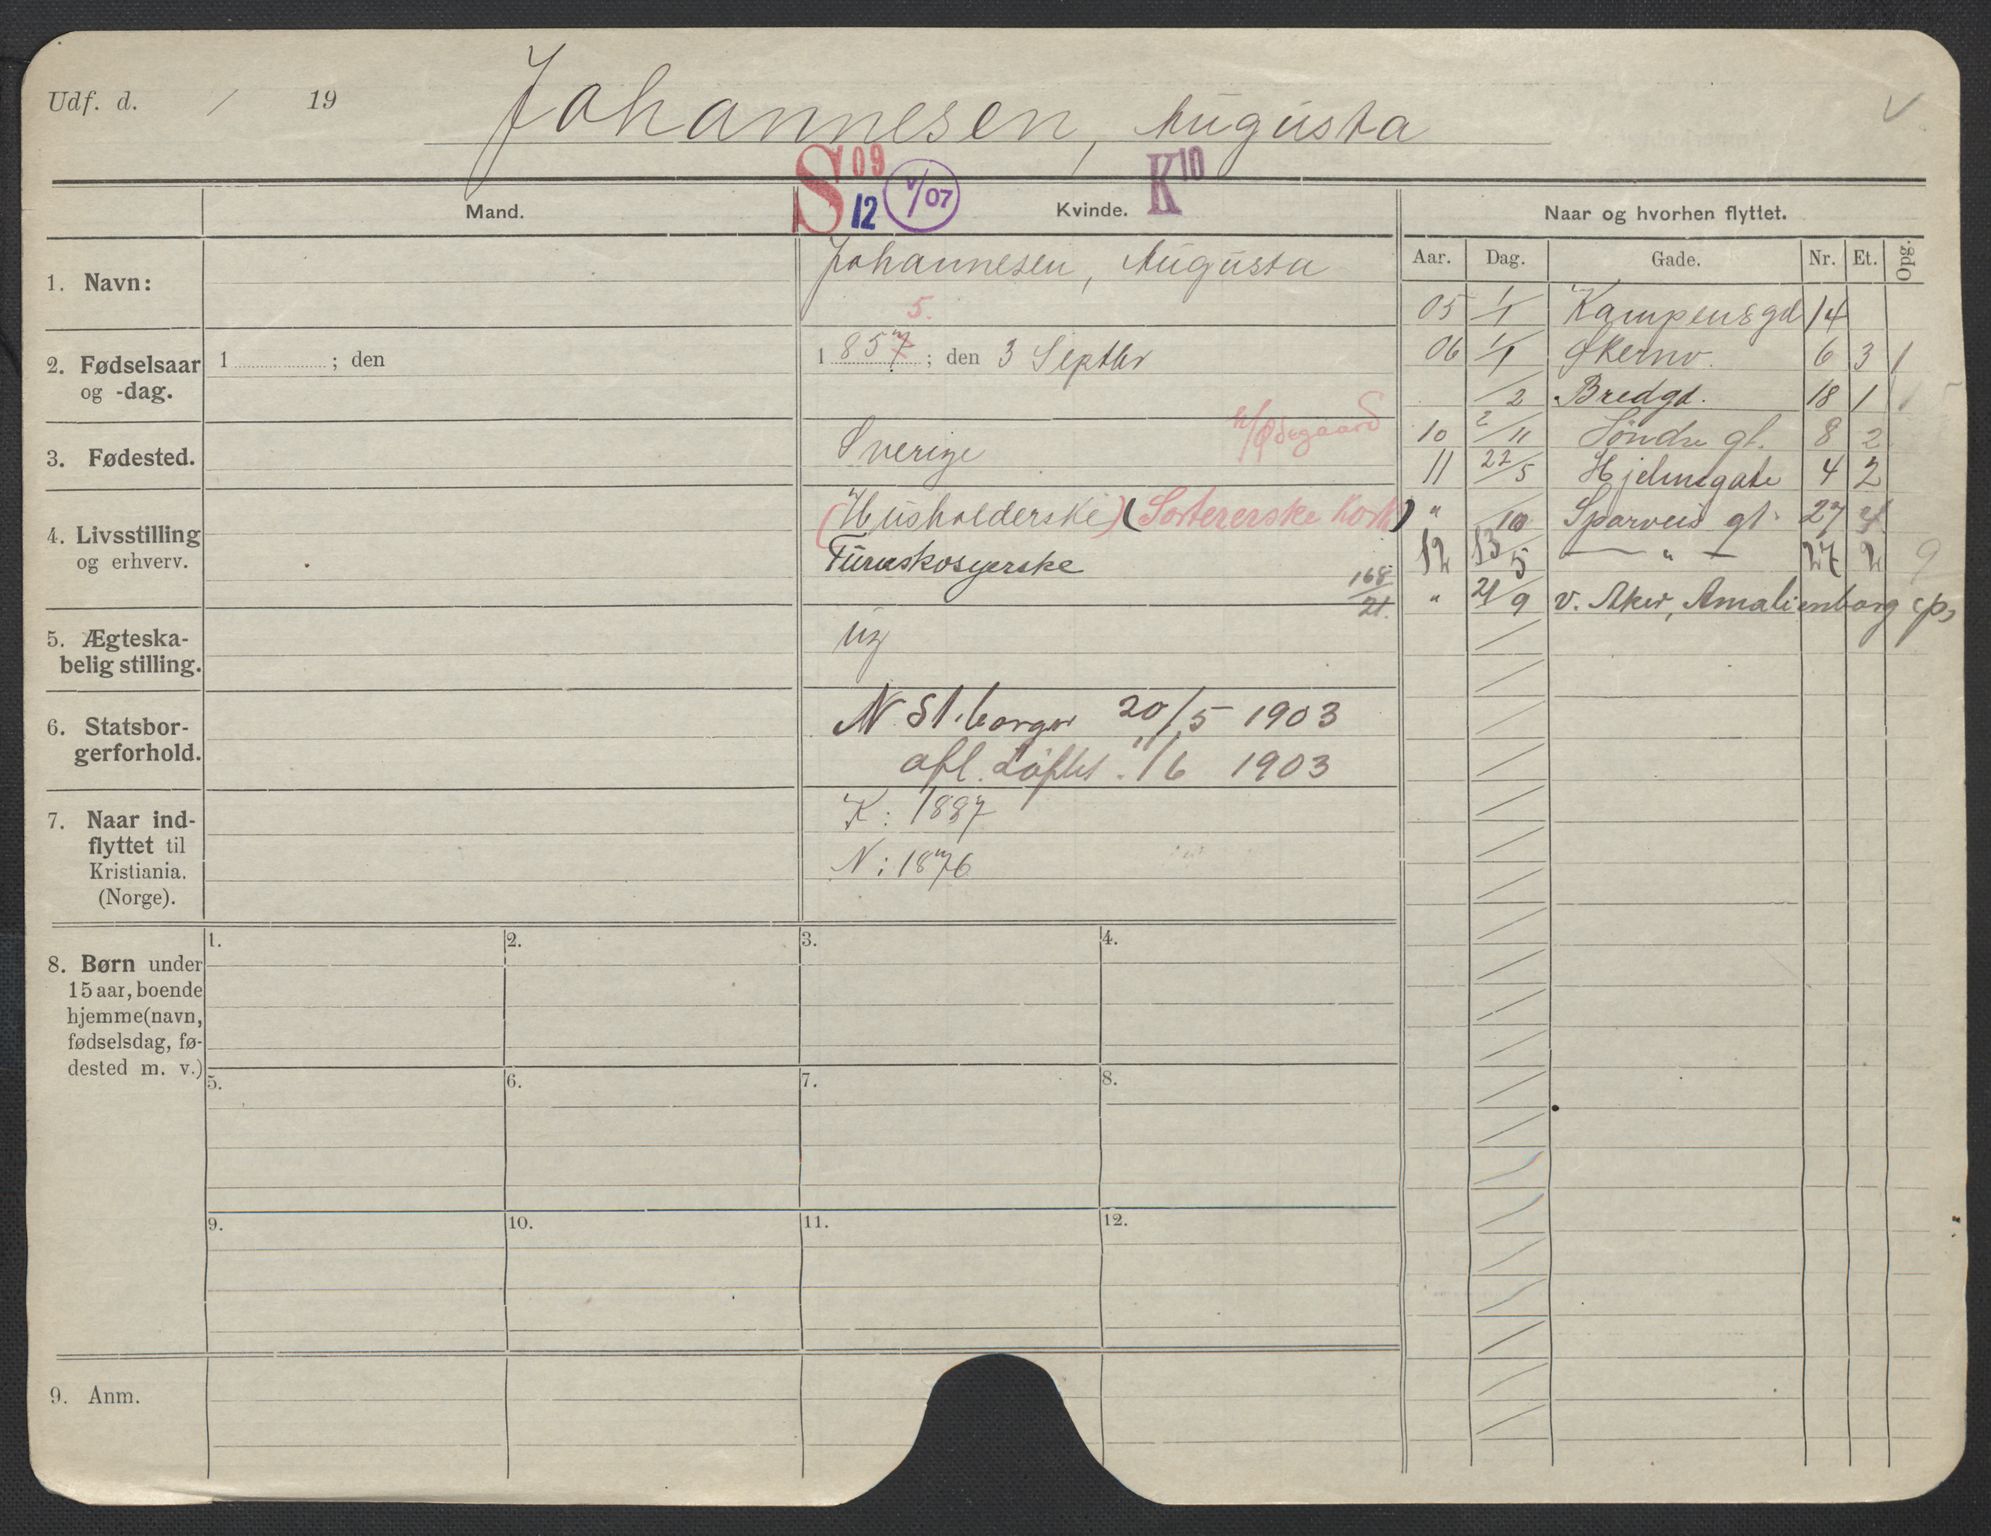 Udf. d. / 19
Johannesen, Augusta
S 09 12 V/07 K 10
Mand. Kvinde. Naar og hvorhen flyttet.
Aar. Dag. Gade. Nr. Et. Opg.
1. Navn: Johannesen, Augusta
5.
2. Fødselsaar og -dag. 1 ; den 1 857 ; den 3 Septbr
3. Fødested. Sverige
h/Ødegaard
4. Livsstilling og erhverv. (Husholderske) (Sortererske Kork)
168/21.
5. Ægteskabelig stilling. ug
6. Statsborgerforhold. N St.borger 20/5 1903
afl. Løftet 11/6 1903
7. Naar indflyttet til Kristiania. (Norge). K: 1887
N: 1876
05 1/1 Kampensgd 14
06 1/1 Økernv. 6 3 1
/2 Bredgd. 18 1 1
10 2/11 Søndre gt. 8 2
11 22/5 Hjelmsgate 4 2
" /10 Sparveis gt. 27 4
12 13/5 — " — 27 2 9
" 21/9 v. Aker, Amalienborg
8. Børn under
15 aar, boende
hjemme (navn,
fødselsdag, fø-
dested m. v.)
1. 2. 3. 4.
5. 6. 7. 8.
9. 10. 11. 12.
9. Anm.